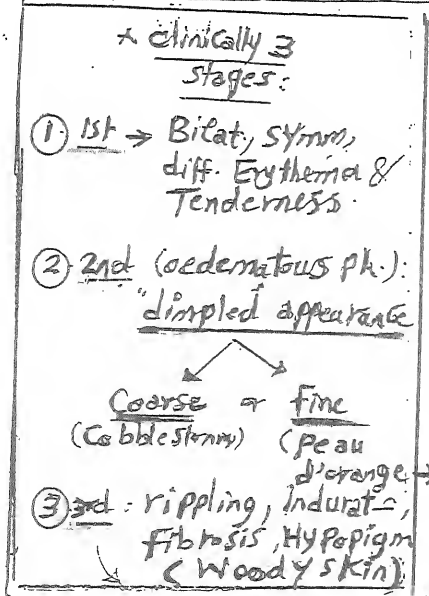 * clinically 3
stages:
① 1st → Bilat., symm,
diff. Erythema &
Tenderness.
② 2nd (oedematous ph.):
"dimpled" appearance
Coarse or fine
(Cobblestonny) (peau
d'orange →
③ 3rd: rippling, indurat-,
fibrosis, Hypopigm
(Woody skin)